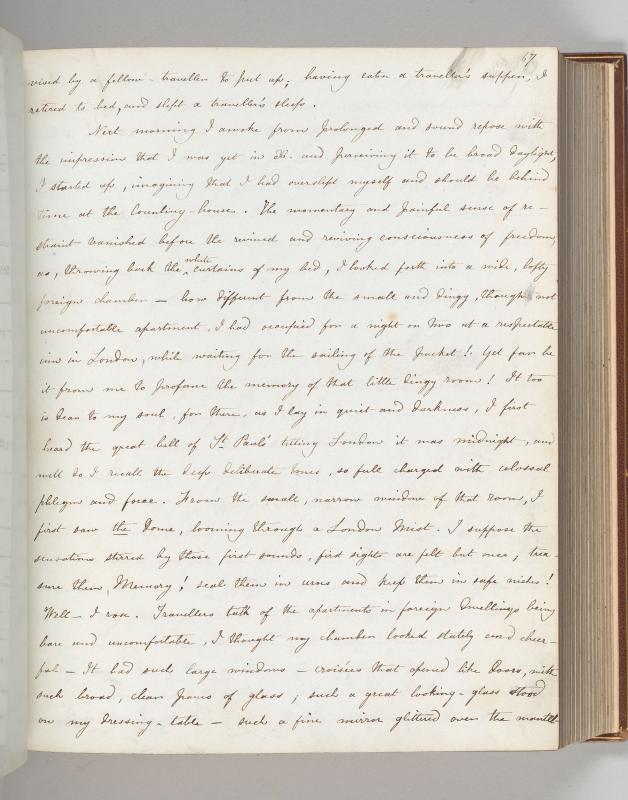 67
vised by a fellow-traveller to put up; having eaten a traveller's supper, I
retired to bed, and slept a traveller's sleep.
Next morning I awoke from prolonged and sound repose with
the impression that I was yet in X- and perceiving it to be broad daylight,
I started up, imagining that I had overslept myself and should be behind
time at the Counting-house. The momentary and painful sense of re-
straint vanished before the revived and reviving consciousness of freedom,
as, throwing back the white curtains of my bed, I looked forth into a wide, lofty
foreign chamber — how different from the small and dingy, though not
uncomfortable apartment, I had occupied for a night or two at a respectable
inn in London, while waiting for the sailing of the packet! Yet far be
it from me to profane the memory of that little dingy room! It too
is dear to my soul, for there, as I lay in quiet and darkness, I first
heard the great bell of St Paul's telling London it was midnight, and
well do I recall the deep deliberate tones, so full charged with colossal
phlegm and force. From the small, narrow window of that room, I
first saw the Dome, looming through a London Mist. I suppose the
sensations stirred by those first sounds, first sights are felt but once; trea-
sure them, Memory! seal them in urns and keep them in safe niches!
Well — I rose. Travellers talk of the apartments in foreign dwellings being
bare and uncomfortable, I thought my chamber looked stately and cheer-
ful — It had such large windows — croisées that opened like doors, with
such broad, clear panes of glass; such a great looking-glass stood
on my dressing-table — such a fine mirror glittered over the mantle